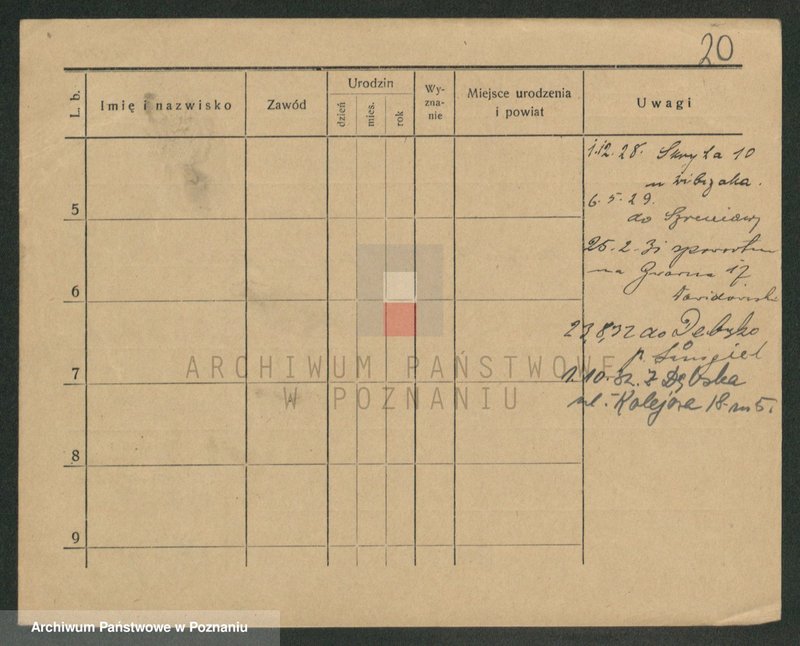 20
L. b.
Imię i nazwisko
Zawód
Urodzin
dzień
mies.
rok
Wy-
zna-
nie
Miejsce urodzenia
i powiat
Uwagi
5
6
7
8
9
1.12.28. Skryta 10
u
6.5.29.
do Szreniawy
25.2.31 spowrotem
na Gwarna 17
23.8.32 do Dębsko
p. Śmigiel
1.10.32. z Dębska
ul. Kolejowa 18 m 5.
ARCHIWUM PAŃSTWOWE
W POZNANIU
Archiwum Państwowe w Poznaniu